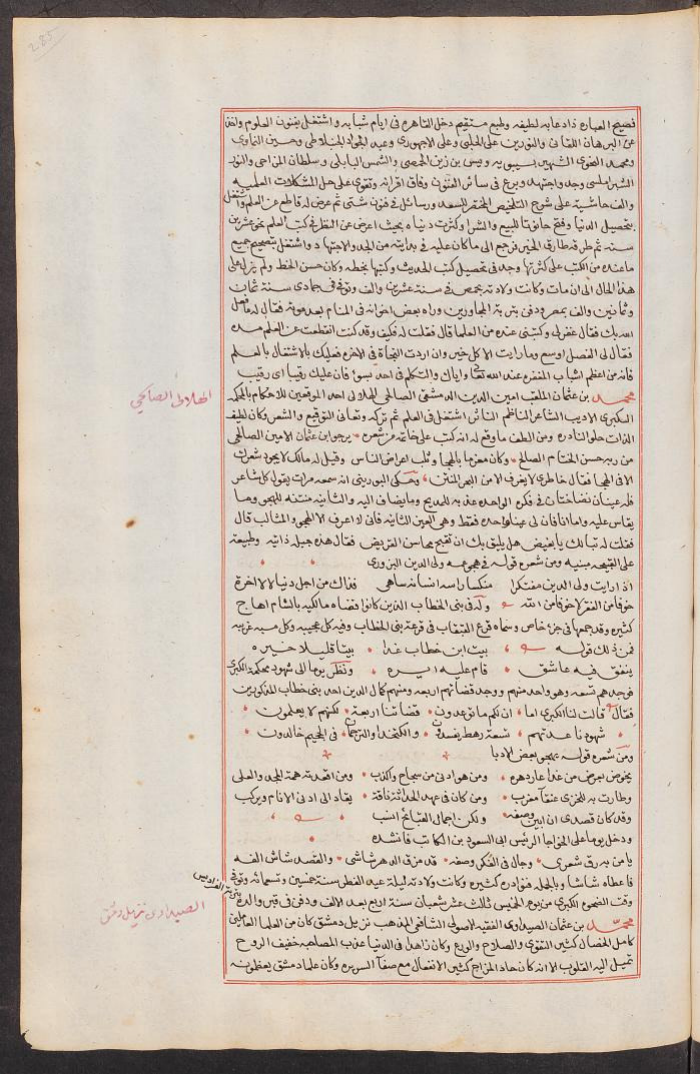 285
فصيح العباره ذا دعابه لطيفه وطبع مستقيم دخل القاهره فى ايام شبابه واشتغل بفنون العلوم واخذ
عن البرهان اللقانى والنورين على الحلبى وعلى الاجهورى وعبد الجواد الخلاطى وحسين النماوى
ومحمد الصوى الشهير بسيبويه ويس بن زين الحمصى والشمس البابلى وسلطان المزاحى والنور
الشبراملسى وجد واجتهد وبرع فى سائر الفنون وفاق اقرانه وتقوى على حل المشكلات العلميه
والف حاشية على شرح التلخيص المختصر للسعد ورسائل فى فنون شتى ثم عرض له قاطع عن العلم واشتغل
بتحصيل الدنيا وفتح حانوتا للبيع والشرا وكثرت دنياه بحيث اعرض عن النظر فى كتب العلم نحو عشرين
سنه ثم طرقه طارق الخير فرجع الى ما كان عليه فى بدايته من الجد والاجتهاد واشتغل بتصحيح جميع
ما عنده من الكتب على كثرتها وجد فى تحصيل كتب الحديث وكتبها بخطه وكان حسن الخط ولم يزل على
هذا الحال الى ان مات وكانت ولادته بحمص فى سنة عشرين والف وتوفى فى جمادى سنة ثمان
وثمانين والف بمصر ودفن بتربة المجاورين وراه بعض اخوانه فى المنام بعد موته فقال له ما فعل
الله بك فقال غفر لى وكتبنى عنده من العلما قال فقلت له فكيف وقد كنت انقطعت عن العلم مده
فقال لى الفضل اوسع وما رايت الا كل خير وان اردت النجاة فى الاخره فعليك بالاشتغال بالعلم
فانه من اعظم اسباب المغفره عند الله تعالى واياك والتكلم فى احد بسوء فان عليك رقيبا اى رقيب
محمد بن عثمان الملقب امين الدين الدمشقى الصالحى الهلالى احد الموقعين للاحكام بالمحكمة
الكبرى الاديب الشاعر الناظم الناثر اشتغل فى العلم ثم تركه وتعانى التوقيع والشعر وكان لطيف
الذات حلو النادره ومن الطف ما وقع له انه كتب على خاتمه من شعره • يرجو ابن عثمان الامين الصالحى
من ربه حسن الختام الصالح • وكان مغرما بالهجا وثلب اعراض الناس وقيل له مالك لا يجود شعرك
الا فى الهجا فقال خاطرى لا يغرف الا من البحر المنتن • وحكى البورينى انه سمعه مرات يقول كل شاعر
فله عينان نضاختان فى فكره الواحده عذبه للمديح وما يضاف اليه والثانيه منتنه للهجو وما
يقاس عليه واما انا فان لى عينا واحده فقط وهى العين الثانيه فانى لا اعرف الا الهجو والمثالب قال
فقلت له تبا لك يا بغيض هل يليق بك ان تقبح محاسن القريض فقال هذه جبله ذاتيه وطبيعة
على القبيحه مبنيه ومن شعره قوله فى هجو ولى الدين البزورى
اذا رايت ولى الدين مفتكرا منكسا راسه انسانه ساهى فذاك من اجل دنيا لا لاخرة
خوفا من الفقر لا خوفا من الله • وله فى بنى الخطاب الذين كانوا قضاه مالكيه بالشام اهاج
كثيره وقد جمعها فى جزء خاص وسماه قرع القبقاب فى قرعة بنى الخطاب وفيه كل عجيبه وكل مسبه غريبه
فمن ذلك قوله بيت ابن خطاب غدا • بيتا قليلا خيره
ينفق فيه عاشق • قام عليه ايره • ونظر يوما الى شهود محكمة الكبرى
فوجدهم تسعه وهو واحد منهم ووجد قضاتهم اربعه ومنهم كمال الدين احد بنى خطاب المذكورين
فقال • قالت لنا الكبرى اما • ان لكم ما توعدون • قضاتنا اربعة • لكنهم لا يعلمون
• شهودنا عدتهم • تسعة رهط يفسدون • والكتخدا والترجمان • فى الجحيم خالدون •
ومن شعره قوله يهجى بعض الادبا
يخوض بعرض من غدا عار دهره • ومن هو ادنى من سجاح واكذب • ومن اقعدته همة المجد والعلى
وطارت به للخزى عنقا مغرب • ومن كان فى عهد الحداثة ناقة • يقاد الى ادنى الانام ويركب
وقد كان قصدى ان ابين وصفه • ولكن اجمالى القبائح انسب
ودخل يوما على الخواجا الرئيس ابى السعود بن الكاتب فانشده
يا من به رق شعرى • وجال فى الفكر وصفه • قد مزق الدهر شاشى • والقصد شاش الفه
فاعطاه شاشا وبالجمله فنوادره كثيره وكانت ولادته ليلة عيد الفطر سنة خمسين وتسعمائه وتوفى
وقت الضحوه الكبرى من يوم الخميس ثالث عشر شعبان سنة اربع بعد الالف ودفن فى قبر والده
بتربة الفراديس
محمد بن عثمان الصيداوى الفقيه الاصولى الشافعى المذهب نزيل دمشق كان من العلما العاملين
كامل الخصال كثير التقوى والصلاح والورع وكان زاهدا فى الدنيا عذب المصاحبه خفيف الروح
تميل اليه القلوب الا انه كان حاد المزاج كثير الانفعال مع صفاء السريره وكان علما دمشق يعظمونه
الهلالى الصالحى
الصيداوى نزيل دمشق